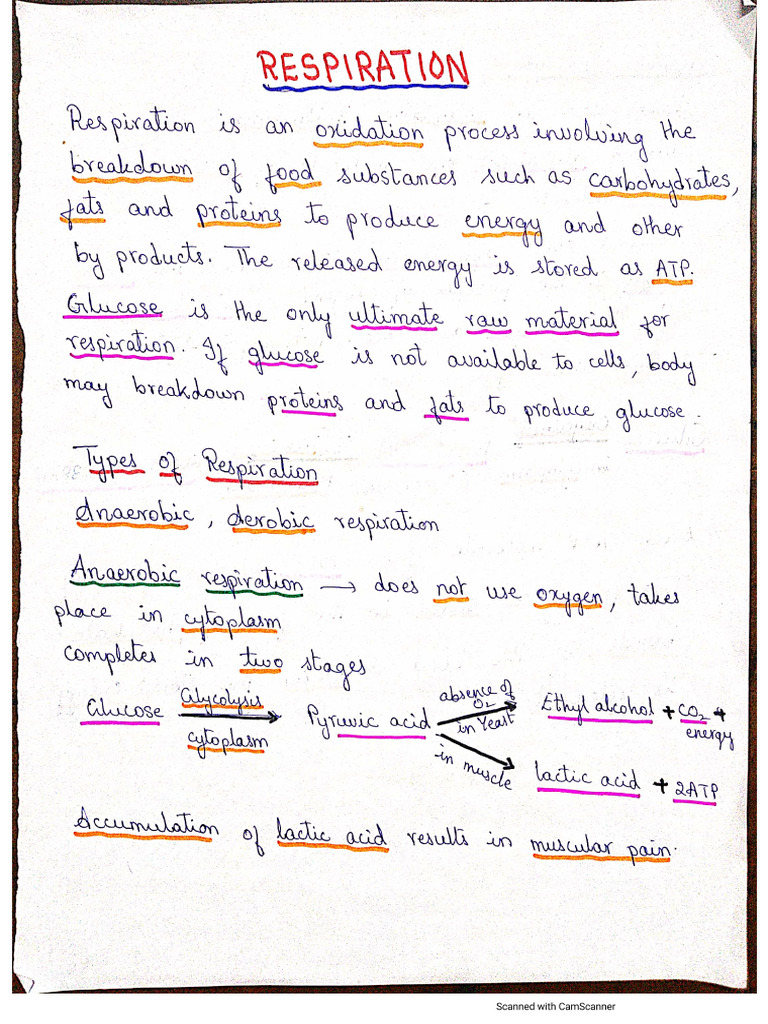 RESPIRATION
Respiration is an oxidation process involving the
breakdown of food substances such as carbohydrates,
fats and proteins to produce energy and other
by products. The released energy is stored as ATP.
Glucose is the only ultimate raw material for
respiration. If glucose is not available to cells, body
may breakdown proteins and fats to produce glucose.
Types of Respiration
Anaerobic, Aerobic respiration
Anaerobic respiration → does not use oxygen, takes
place in cytoplasm
completes in two stages
Glucose Glycolysis cytoplasm → Pyruvic acid absence of O2 in Yeast → Ethyl alcohol + CO2 + energy
in muscle → lactic acid + 2ATP
Accumulation of lactic acid results in muscular pain.
Scanned with CamScanner